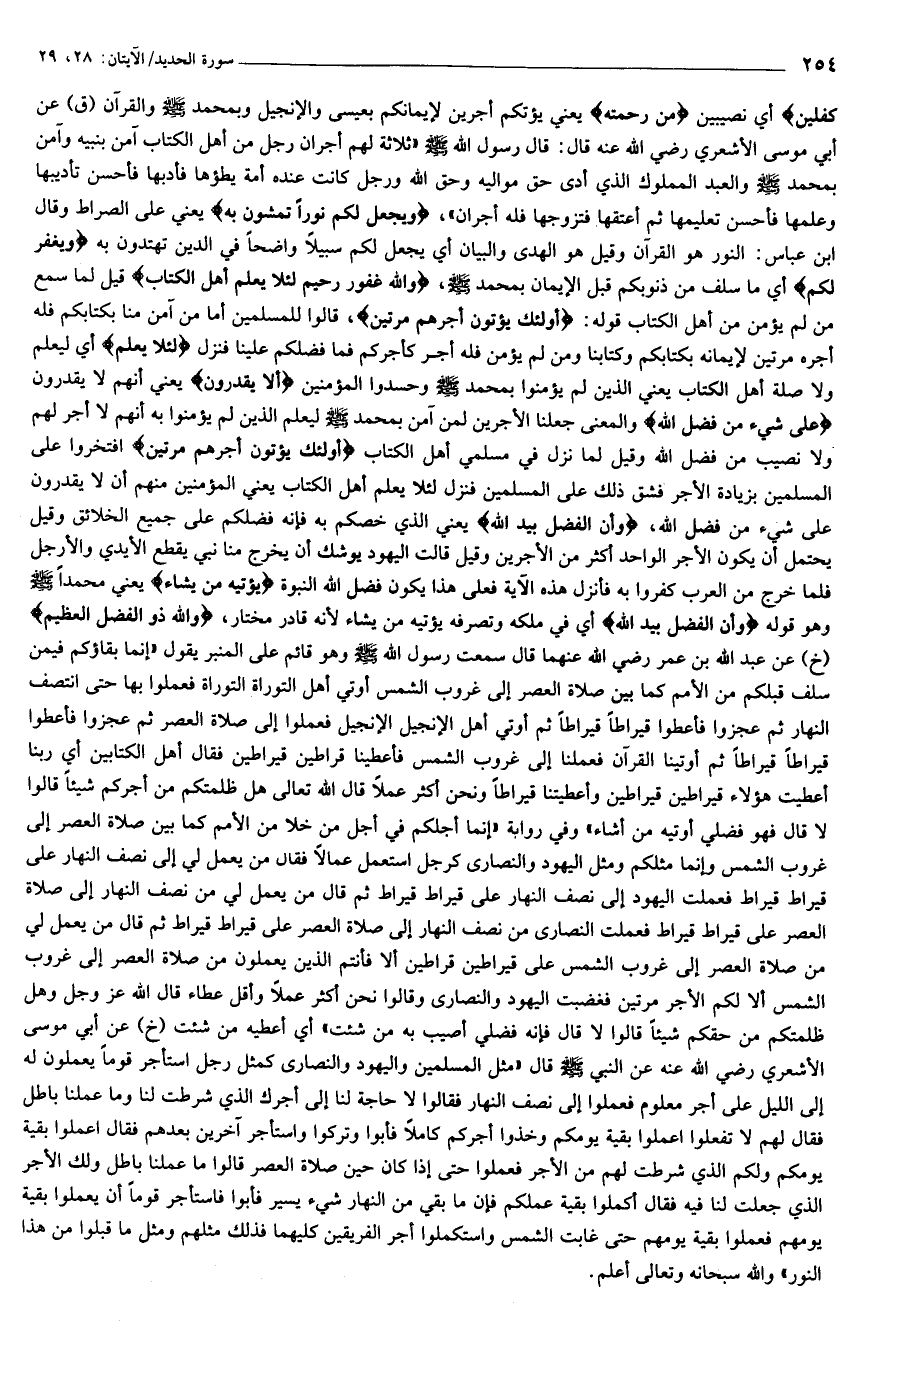 ٢٥٤ سورة الحديد/ الآيتان: ٢٨، ٢٩
كفلين﴾ أي نصيبين ﴿من رحمته﴾ يعني يؤتكم أجرين لإيمانكم بعيسى والإنجيل وبمحمد ﷺ والقرآن (ق) عن
أبي موسى الأشعري رضي الله عنه قال: قال رسول الله ﷺ «ثلاثة لهم أجران رجل من أهل الكتاب آمن بنبيه وآمن
بمحمد ﷺ والعبد المملوك الذي أدى حق مواليه وحق الله ورجل كانت عنده أمة يطؤها فأدبها فأحسن تأديبها
وعلمها فأحسن تعليمها ثم أعتقها فتزوجها فله أجران»، ﴿ويجعل لكم نوراً تمشون به﴾ يعني على الصراط وقال
ابن عباس: النور هو القرآن وقيل هو الهدى والبيان أي يجعل لكم سبيلاً واضحاً في الدين تهتدون به ﴿ويغفر
لكم﴾ أي ما سلف من ذنوبكم قبل الإيمان بمحمد ﷺ، ﴿والله غفور رحيم لئلا يعلم أهل الكتاب﴾ قيل لما سمع
من لم يؤمن من أهل الكتاب قوله: ﴿أولئك يؤتون أجرهم مرتين﴾، قالوا للمسلمين أما من آمن منا بكتابكم فله
أجره مرتين لإيمانه بكتابكم وكتابنا ومن لم يؤمن فله أجر كأجركم فما فضلكم علينا فنزل ﴿لئلا يعلم﴾ أي ليعلم
ولا صلة أهل الكتاب يعني الذين لم يؤمنوا بمحمد ﷺ وحسدوا المؤمنين ﴿ألا يقدرون﴾ يعني أنهم لا يقدرون
﴿على شيء من فضل الله﴾ والمعنى جعلنا الأجرين لمن آمن بمحمد ﷺ ليعلم الذين لم يؤمنوا به أنهم لا أجر لهم
ولا نصيب من فضل الله وقيل لما نزل في مسلمي أهل الكتاب ﴿أولئك يؤتون أجرهم مرتين﴾ افتخروا على
المسلمين بزيادة الأجر فشق ذلك على المسلمين فنزل لئلا يعلم أهل الكتاب يعني المؤمنين منهم أن لا يقدرون
على شيء من فضل الله، ﴿وأن الفضل بيد الله﴾ يعني الذي خصكم به فإنه فضلكم على جميع الخلائق وقيل
يحتمل أن يكون الأجر الواحد أكثر من الأجرين وقيل قالت اليهود يوشك أن يخرج منا نبي يقطع الأيدي والأرجل
فلما خرج من العرب كفروا به فأنزل هذه الآية فعلى هذا يكون فضل الله النبوة ﴿يؤتيه من يشاء﴾ يعني محمداً ﷺ
وهو قوله ﴿وأن الفضل بيد الله﴾ أي في ملكه وتصرفه يؤتيه من يشاء لأنه قادر مختار، ﴿والله ذو الفضل العظيم﴾
(خ) عن عبد الله بن عمر رضي الله عنهما قال سمعت رسول الله ﷺ وهو قائم على المنبر يقول «إنما بقاؤكم فيمن
سلف قبلكم من الأمم كما بين صلاة العصر إلى غروب الشمس أوتي أهل التوراة التوراة فعملوا بها حتى انتصف
النهار ثم عجزوا فأعطوا قيراطاً قيراطاً ثم أوتي أهل الإنجيل الإنجيل فعملوا إلى صلاة العصر ثم عجزوا فأعطوا
قيراطاً قيراطاً ثم أوتينا القرآن فعملنا إلى غروب الشمس فأعطينا قراطين قيراطين فقال أهل الكتابين أي ربنا
أعطيت هؤلاء قيراطين قيراطين وأعطيتنا قيراطاً ونحن أكثر عملاً قال الله تعالى هل ظلمتكم من أجركم شيئاً قالوا
لا قال فهو فضلي أوتيه من أشاء» وفي رواية «إنما أجلكم في أجل من خلا من الأمم كما بين صلاة العصر إلى
غروب الشمس وإنما مثلكم ومثل اليهود والنصارى كرجل استعمل عمالاً فقال من يعمل لي إلى نصف النهار على
قيراط قيراط فعملت اليهود إلى نصف النهار على قيراط قيراط ثم قال من يعمل لي من نصف النهار إلى صلاة
العصر على قيراط قيراط فعملت النصارى من نصف النهار إلى صلاة العصر على قيراط قيراط ثم قال من يعمل لي
من صلاة العصر إلى غروب الشمس على قيراطين قراطين ألا فأنتم الذين يعملون من صلاة العصر إلى غروب
الشمس ألا لكم الأجر مرتين فغضبت اليهود والنصارى وقالوا نحن أكثر عملاً وأقل عطاء قال الله عز وجل وهل
ظلمتكم من حقكم شيئاً قالوا لا قال فإنه فضلي أصيب به من شئت» أي أعطيه من شئت (خ) عن أبي موسى
الأشعري رضي الله عنه عن النبي ﷺ قال «مثل المسلمين واليهود والنصارى كمثل رجل استأجر قوماً يعملون له
إلى الليل على أجر معلوم فعملوا إلى نصف النهار فقالوا لا حاجة لنا إلى أجرك الذي شرطت لنا وما عملنا باطل
فقال لهم لا تفعلوا اعملوا بقية يومكم وخذوا أجركم كاملاً فأبوا وتركوا واستأجر آخرين بعدهم فقال اعملوا بقية
يومكم ولكم الذي شرطت لهم من الأجر فعملوا حتى إذا كان حين صلاة العصر قالوا ما عملنا باطل ولك الأجر
الذي جعلت لنا فيه فقال أكملوا بقية عملكم فإن ما بقي من النهار شيء يسير فأبوا فاستأجر قوماً أن يعملوا بقية
يومهم فعملوا بقية يومهم حتى غابت الشمس واستكملوا أجر الفريقين كليهما فذلك مثلهم ومثل ما قبلوا من هذا
النور» والله سبحانه وتعالى أعلم.